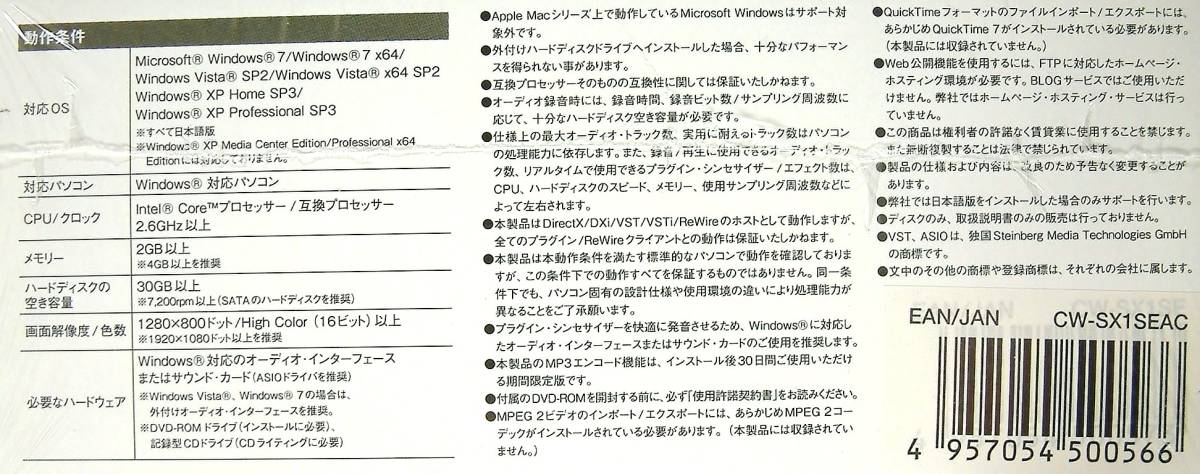 動作条件
対応OS
Microsoft® Windows® 7/Windows® 7 x64/
Windows Vista® SP2/Windows Vista® x64 SP2
Windows® XP Home SP3/
Windows® XP Professional SP3
※すべて日本語版
※Windows® XP Media Center Edition/Professional x64
Editionには対応しておりません。
対応パソコン
Windows® 対応パソコン
CPU/クロック
Intel® Core™プロセッサー/互換プロセッサー
2.6GHz以上
メモリー
2GB以上
※4GB以上を推奨
ハードディスクの
空き容量
30GB以上
※7,200rpm以上(SATAのハードディスクを推奨)
画面解像度/色数
1280×800ドット/High Color (16ビット)以上
※1920×1080ドット以上を推奨
必要なハードウェア
Windows®対応のオーディオ・インターフェース
またはサウンド・カード(ASIOドライバを推奨)
※Windows Vista®、Windows® 7の場合は、
外付けオーディオ・インターフェースを推奨。
※DVD-ROMドライブ(インストールに必要)、
記録型CDドライブ(CDライティングに必要)
●Apple Macシリーズ上で動作しているMicrosoft Windowsはサポート対
象外です。
●外付けハードディスクドライブへインストールした場合、十分なパフォーマン
スを得られない事があります。
●互換プロセッサーそのものの互換性に関しては保証いたしかねます。
●オーディオ録音時には、録音時間、録音ビット数/サンプリング周波数に
応じて、十分なハードディスク空き容量が必要です。
●仕様上の最大オーディオ・トラック数、実用に耐えるトラック数はパソコン
の処理能力に依存します。また、録音/再生に使用できるオーディオ・トラッ
ク数、リアルタイムで使用できるプラグイン・シンセサイザー/エフェクト数は、
CPU、ハードディスクのスピード、メモリー、使用サンプリング周波数などに
よって左右されます。
●本製品はDirectX/DXi/VST/VSTi/ReWireのホストとして動作しますが、
全てのプラグイン/ReWireクライアントとの動作は保証いたしかねます。
●本製品は本動作条件を満たす標準的なパソコンで動作を確認しておりま
すが、この条件下での動作すべてを保証するものではありません。同一条
件下でも、パソコン固有の設計仕様や使用環境の違いにより処理能力が
異なることをご了承願います。
●プラグイン・シンセサイザーを快適に発音させるため、Windows®に対応し
たオーディオ・インターフェースまたはサウンド・カードのご使用を推奨します。
●本製品のMP3エンコード機能は、インストール後30日間ご使用いただけ
る期間限定版です。
●付属のDVD-ROMを開封する前に、必ず「使用許諾契約書」をお読みください。
●MPEG 2ビデオのインポート/エクスポートには、あらかじめMPEG 2コー
デックがインストールされている必要があります。(本製品には収録されてい
ません。)
●QuickTimeフォーマットのファイルインポート/エクスポートには、
あらかじめQuickTime 7がインストールされている必要があります。
(本製品には収録されていません。)
●Web公開機能を使用するには、FTPに対応したホームページ・
ホスティング環境が必要です。BLOGサービスではご使用いただ
けません。弊社ではホームページ・ホスティング・サービスは行っ
ていません。
●この商品は権利者の許諾なく賃貸業に使用することを禁じます。
また無断複製することは法律で禁じられています。
●製品の仕様および内容は、改良のため予告なく変更することが
あります。
●弊社では日本語版をインストールした場合のみサポートを行います。
●ディスクのみ、取扱説明書のみの販売は行っておりません。
●VST、ASIOは、独国Steinberg Media Technologies GmbH
の商標です。
●文中のその他の商標や登録商標は、それぞれの会社に属します。
EAN/JAN CW-SX1SEAC
4 957054 500566